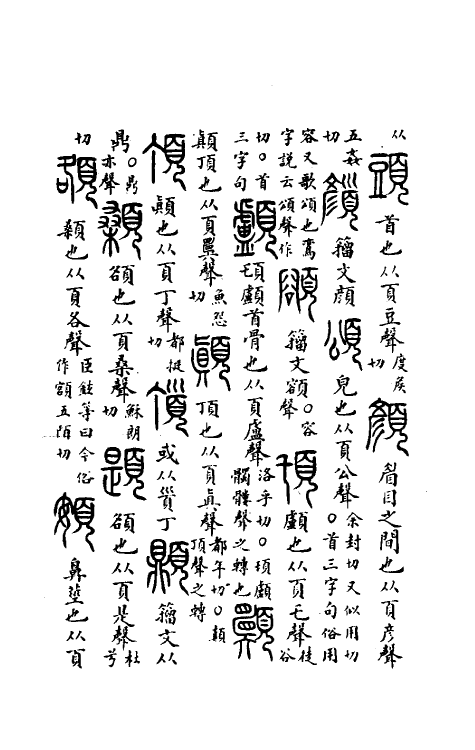 从頭首也从頁豆聲度侯切顏眉目之間也从頁彦聲
五姦切顏籀文顏頌皃也从頁公聲余封切又似用切○首三字句俗用
容又歌頌也廌字說云頌聲作額籀文額○容聲𩑒顱也从頁乇聲徒谷
切○首三字句顱𩑒顱首骨也从頁盧聲洛乎切○𩑒顱髑髏聲之轉也顨
顛頂也从頁㢲聲魚怨切顛頂也从頁眞聲都年切○顛頂聲之轉
頂顛也从頁丁聲都挺切或从丁顁籀文从
鼎○鼎亦聲顙頟也从頁桑聲蘇朗切題頟也从頁是聲杜兮
切頟顙也从頁各聲臣鉉等曰今俗作額五陌切頞鼻莖也从頁